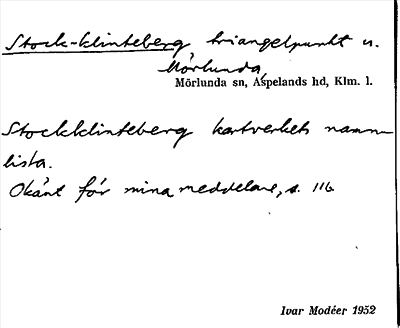 Stock-klinteberg triangelpunkt n.
Mörlunda,
Mörlunda sn, Aspelands hd, Klm. l.
Stockklinteberg kartverkets namn-
lista.
Okänt för mina meddelare, s. 116
Ivar Modéer 1952